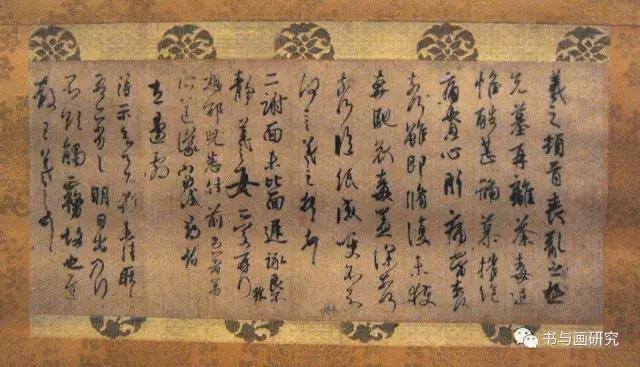 羲之頓首喪亂之極
先墓再離荼毒追
惟酷甚號慕摧絕
痛貫心肝痛當奈何
奈何雖即脩復未獲
奔馳哀毒益深奈何
奈何臨紙感哽不知
何言羲之頓首頓首
二謝面未比面遲詠良
靜羲之女愛再拜
想邵兒悉佳前患者善
所送議當試尋省
左邊劇
得示知足下猶未佳耿耿
吾亦劣劣明日出乃行
不欲觸霧故也遲
散王羲之頓首
书与画研究